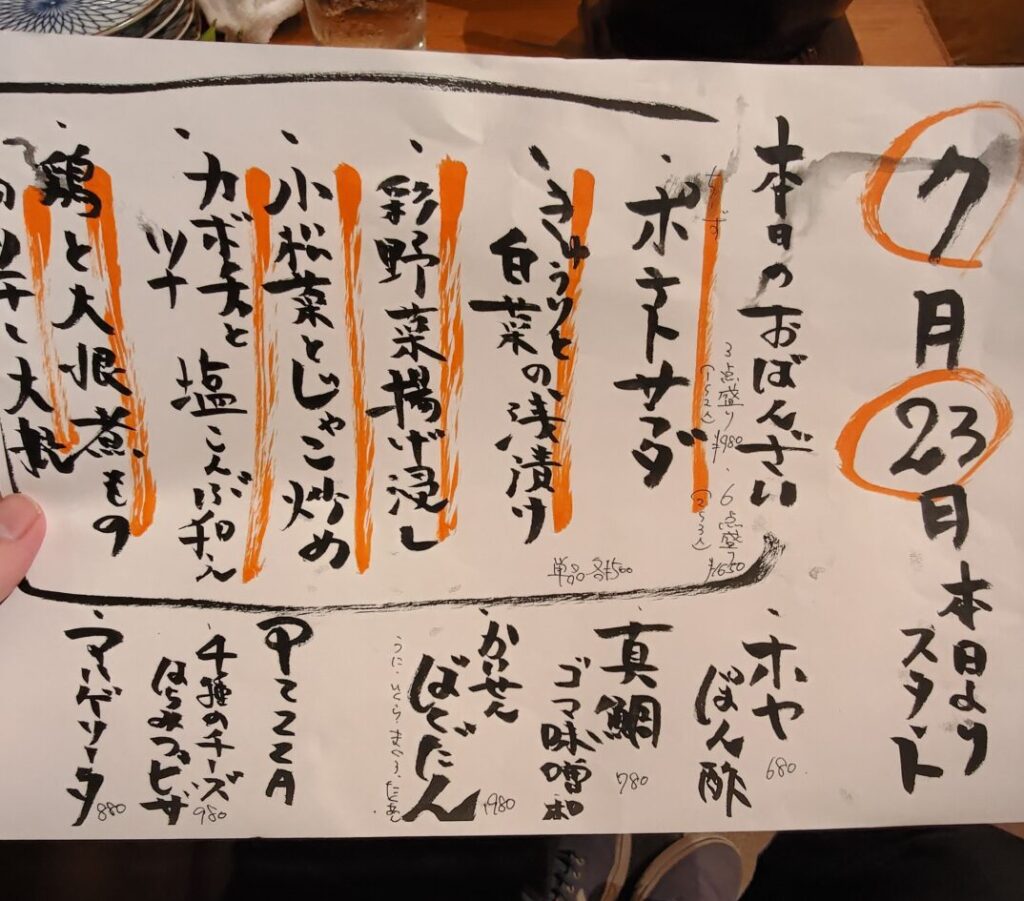 7月23日 本日より
スタート
本日のおばんざい
3点盛り ¥980
6点盛り ¥1650
ポテトサラダ
きゅうりと
白菜の浅漬け
単品 各¥500
彩野菜揚げ浸し
小松菜とじゃこ炒め
カボチャと
ツナ 塩こんぶ和え
鶏と大根煮もの
ホヤ
ぽん酢 680
真鯛
ゴマ味噌和 780
かいせん
ばくだん 980
うに、いくら、まぐろ、たくあん
PIZZA
4種のチーズ
はちみつピザ 980
マルゲリータ 880